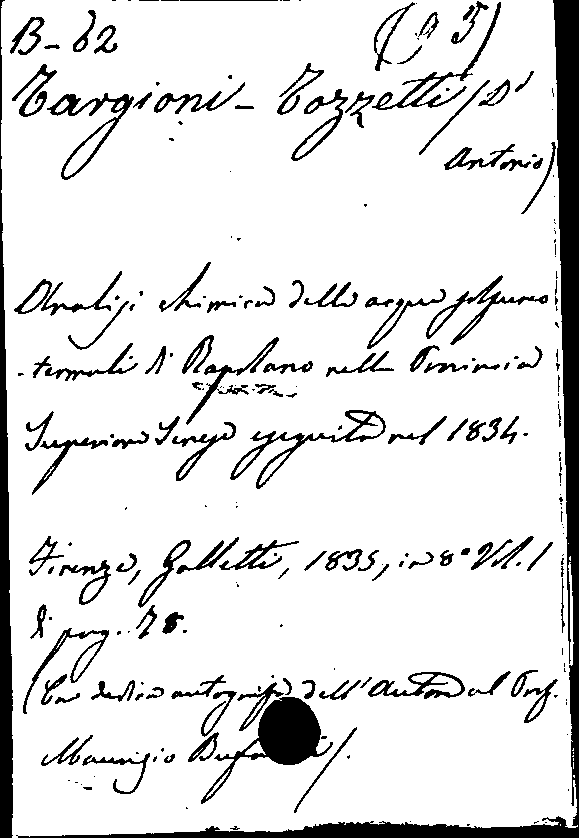 B-62 (93)
Targioni-Tozzetti (Dr
Antonio)
Analisi chimica delle acque solfureo
-termali di Rapolano nella Provincia
Superiore Senese eseguita nel 1834.
Firenze, Galletti, 1835, in 8° Vol. 1
di pag. 78.
(Con dedica autografa dell'Autore al Prof.
Maurizio